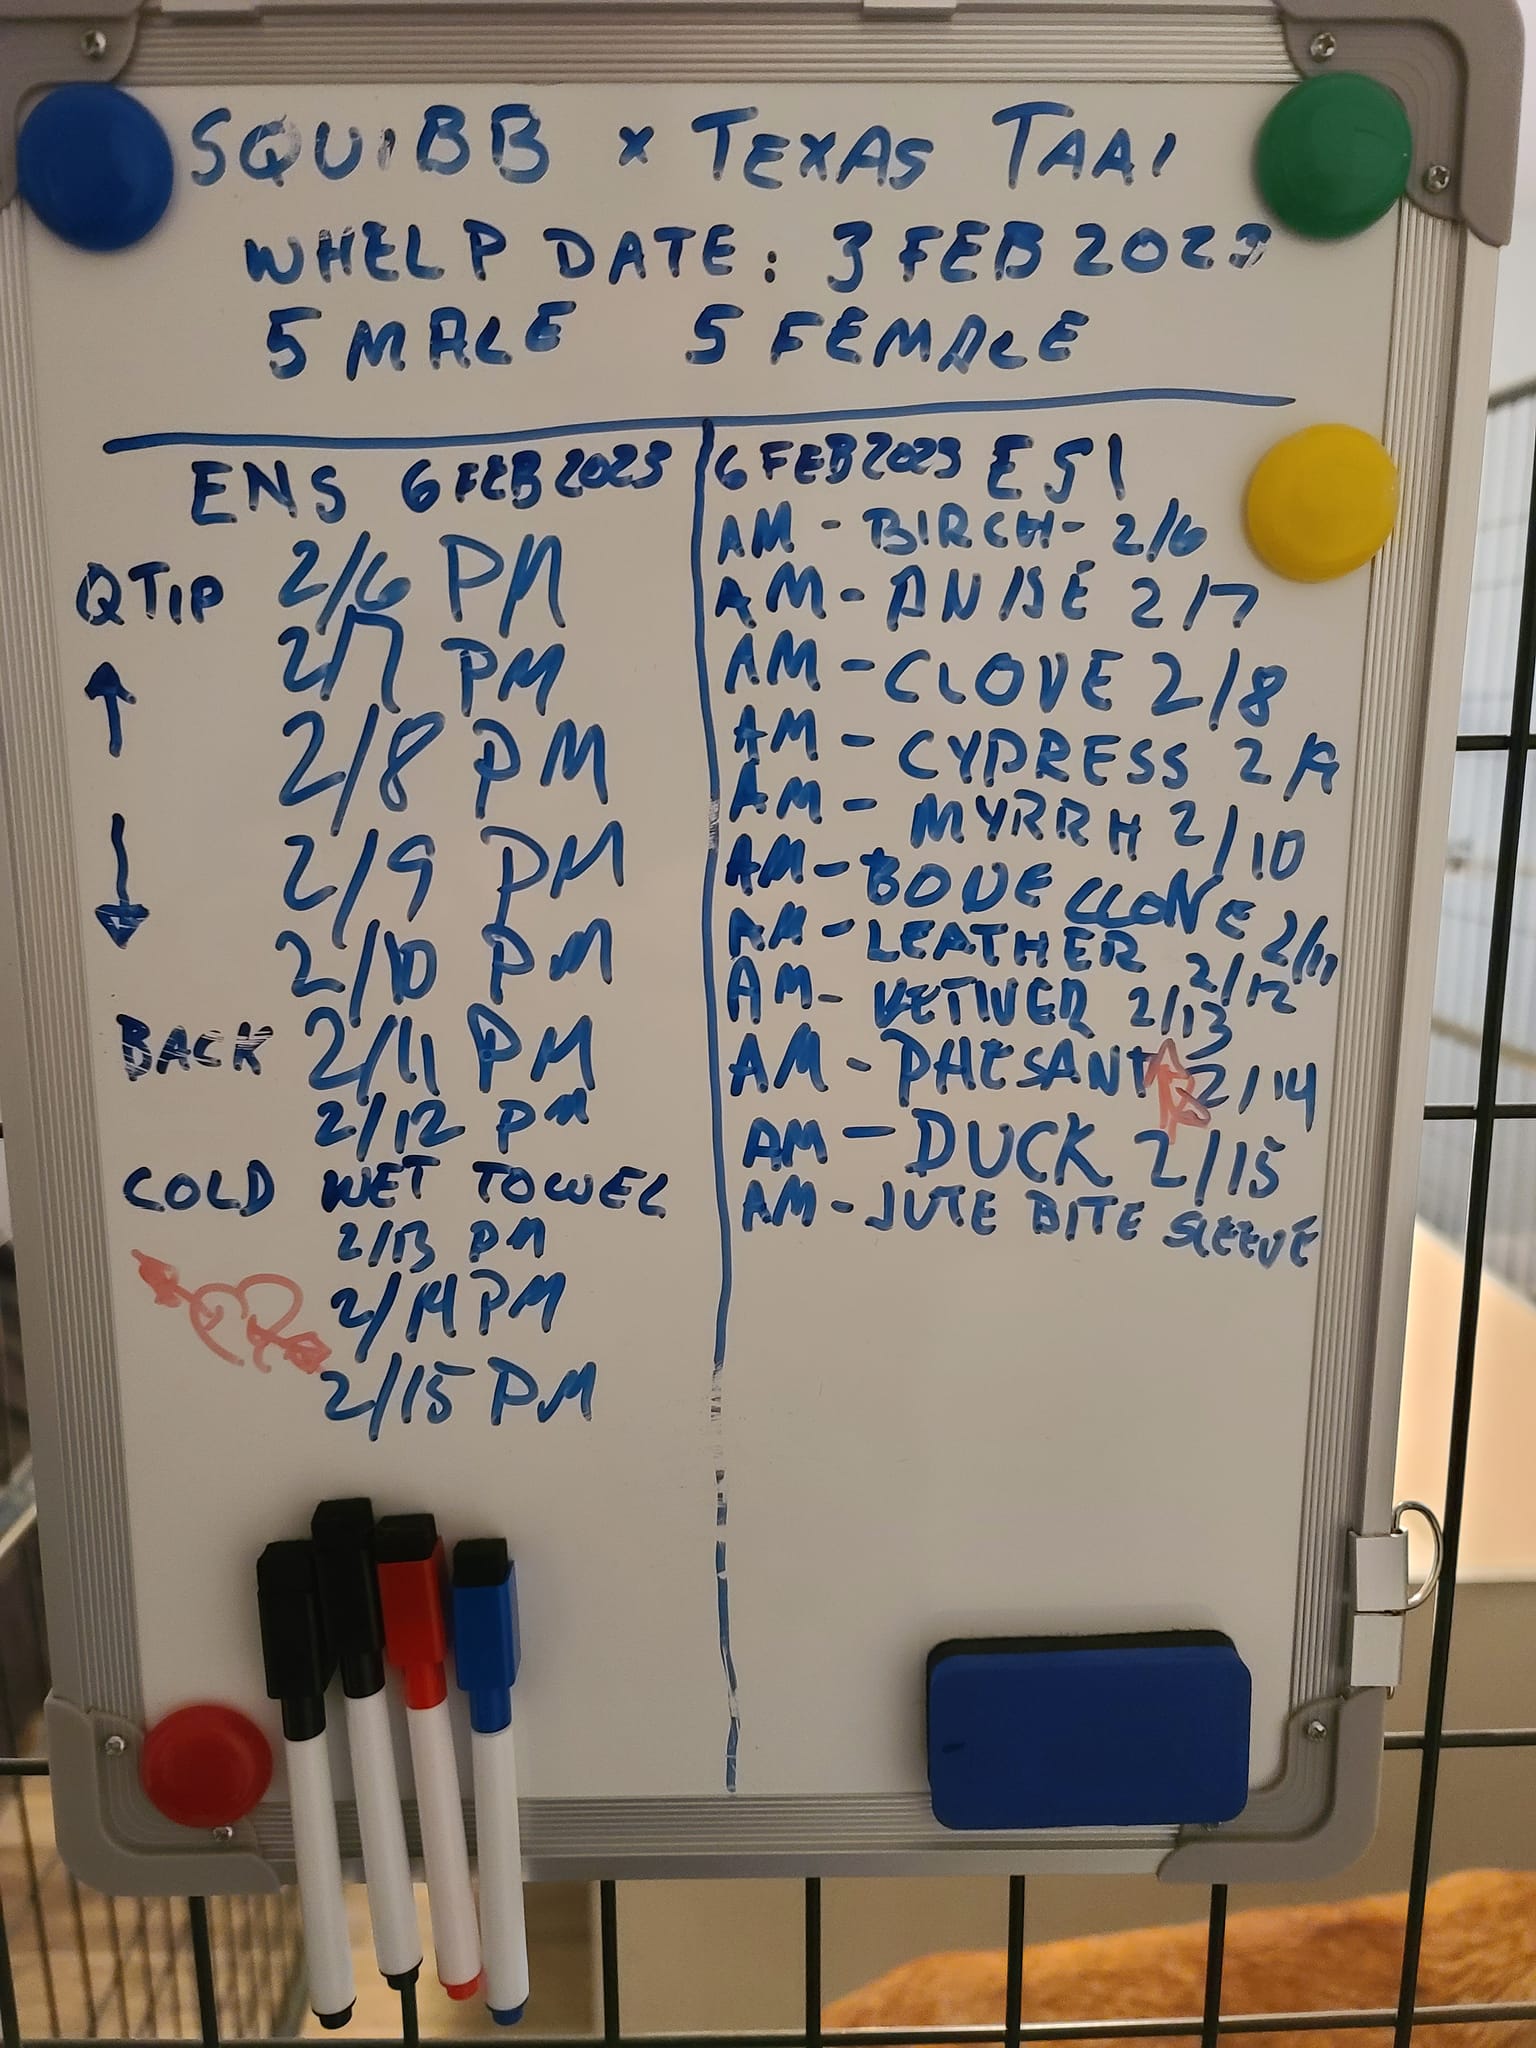 SQUIBB x TEXAS TAAI
WHELP DATE: 3 FEB 2023
5 MALE 5 FEMALE
ENS 6 FEB 2023
QTIP 2/6 PM
2/7 PM
2/8 PM
2/9 PM
2/10 PM
BACK 2/11 PM
2/12 PM
COLD WET TOWEL
2/13 PM
2/14 PM
2/15 PM
6 FEB 2023 ESI
AM - BIRCH - 2/6
AM - ANISE 2/7
AM - CLOVE 2/8
AM - CYPRESS 2/9
AM - MYRRH 2/10
AM - BONE CLONE 2/11
AM - LEATHER 2/12
AM - VETIVER 2/13
AM - PHESANT 2/14
AM - DUCK 2/15
AM - JUTE BITE SLEEVE